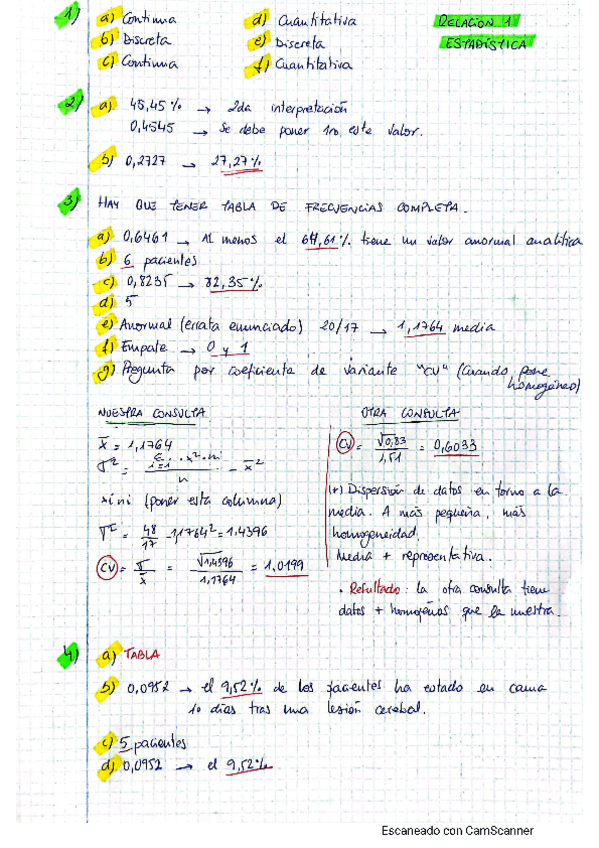 RELACIÓN 1
ESTADÍSTICA
1) a) Continua
b) Discreta
c) Continua
d) Cuantitativa
e) Discreta
f) Cuantitativa
2) a) 45,45% → 2da interpretación
0,4545 → Se debe poner 1ro este valor.
b) 0,2727 → 27,27%
3) HAY QUE TENER TABLA DE FRECUENCIAS COMPLETA.
a) 0,6461 → Al menos el 64,61% tiene un valor anormal analítica
b) 6 pacientes
c) 0,8235 → 82,35%
d) 5
e) Anormal (errata enunciado) 20/17 → 1,1764 media
f) Empate → 0 y 1
g) Pregunta por coeficiente de variante "CV" (Cuando pone
homogéneo)
NUESTRA CONSULTA
x̄ = 1,1764
σ² = Σ i=1 · x² · ni / n - x̄²
xi ni (poner esta columna)
σ² = 48/17 - 1,1764² = 1,4396
CV = σ/x̄ = √1,4396 / 1,1764 = 1,0199
OTRA CONSULTA
CV = √0,83 / 1,51 = 0,6033
(*) Dispersión de datos en torno a la
media. A más pequeña, más
homogeneidad.
Media + representativa.
• Resultado: la otra consulta tiene
datos + homogénos que la nuestra.
4) a) TABLA
b) 0,0952 → el 9,52% de los pacientes ha estado en cama
10 días tras una lesión cerebral.
c) 5 pacientes
d) 0,0952 → el 9,52%
Escaneado con CamScanner